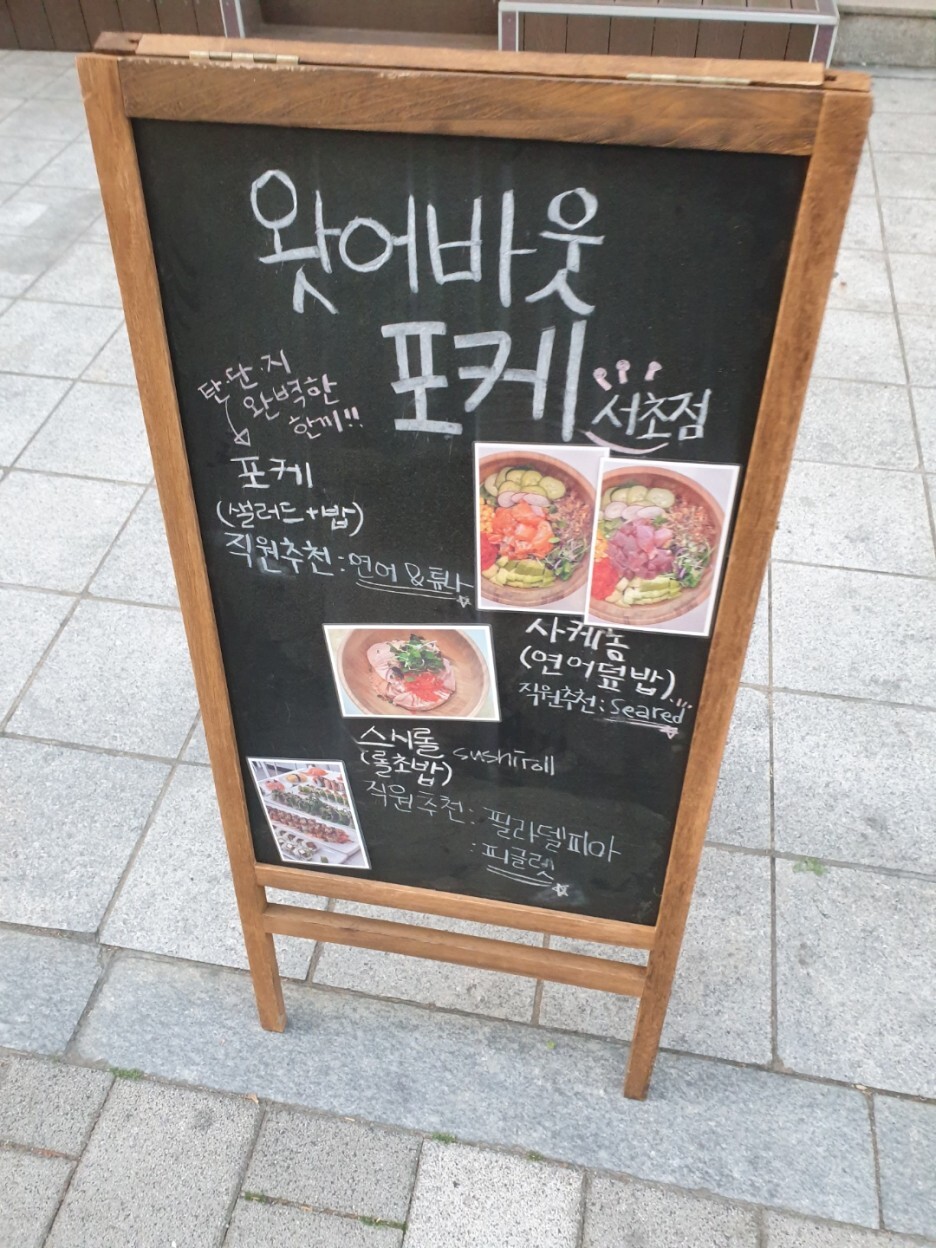 왓어바웃
포케
서초점
탄·단·지
완벽한
한끼!!
포케
(샐러드+밥)
직원추천: 연어 & 튜나
사케동
(연어덮밥)
직원추천: Seared
스시롤 sushiroll
(롤초밥)
직원추천: 필라델피아
: 피글렛